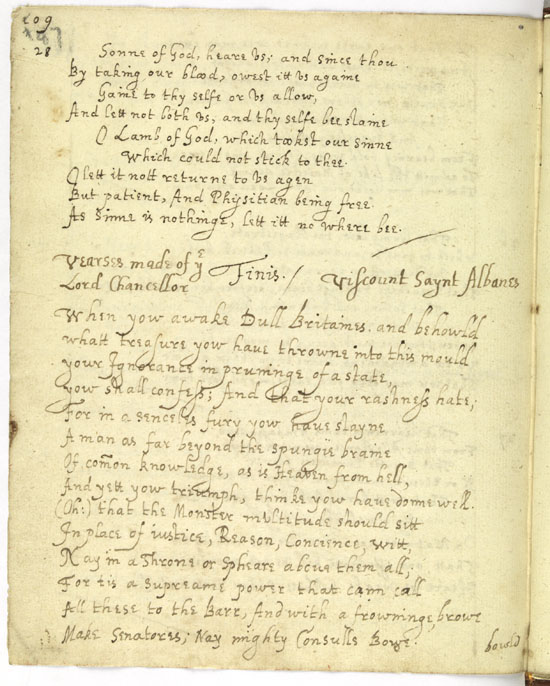 109
28
Sonne of God, heare vs; and since thou
By taking our blood, owest itt vs againe
Gaine to thy selfe or vs allow,
And lett not both vs, and thy selfe bee slaine
O Lamb of God, which tookst our sinne
Which could not stick to thee.
O lett it nott returne to vs agen
But patient, And Physitian being free.
As Sinne is nothinge, lett itt no where bee.
Finis. /
Vearses made of ye
Lord Chancellor
Viscount Saynt Albanes
When yow awake Dull Brittaines, and behowld
whatt treasure yow have throwne into this mould
your Ignorance in pruninge of a state,
yow shall confess; And that your rashness hate;
For in a senceles fury yow have slayne
A man as far beyond the spungie braine
Of common knowledge, as is Heaven from hell,
And yett yow triumph, thinke yow have donne well.
(Oh:) that the Monster multitude should sitt
In place of iustice, Reason, Concience, witt,
Nay in a Throne or Spheare above them all;
For tis a supreame power that cann call
All these to the Barr, And with a frowninge browe
Make Senatores; Nay mighty Consulls Bowe.
bowld